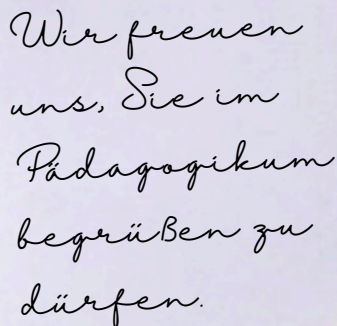 Wir freuen
uns, Sie im
Pädagogikum
begrüßen zu
dürfen.